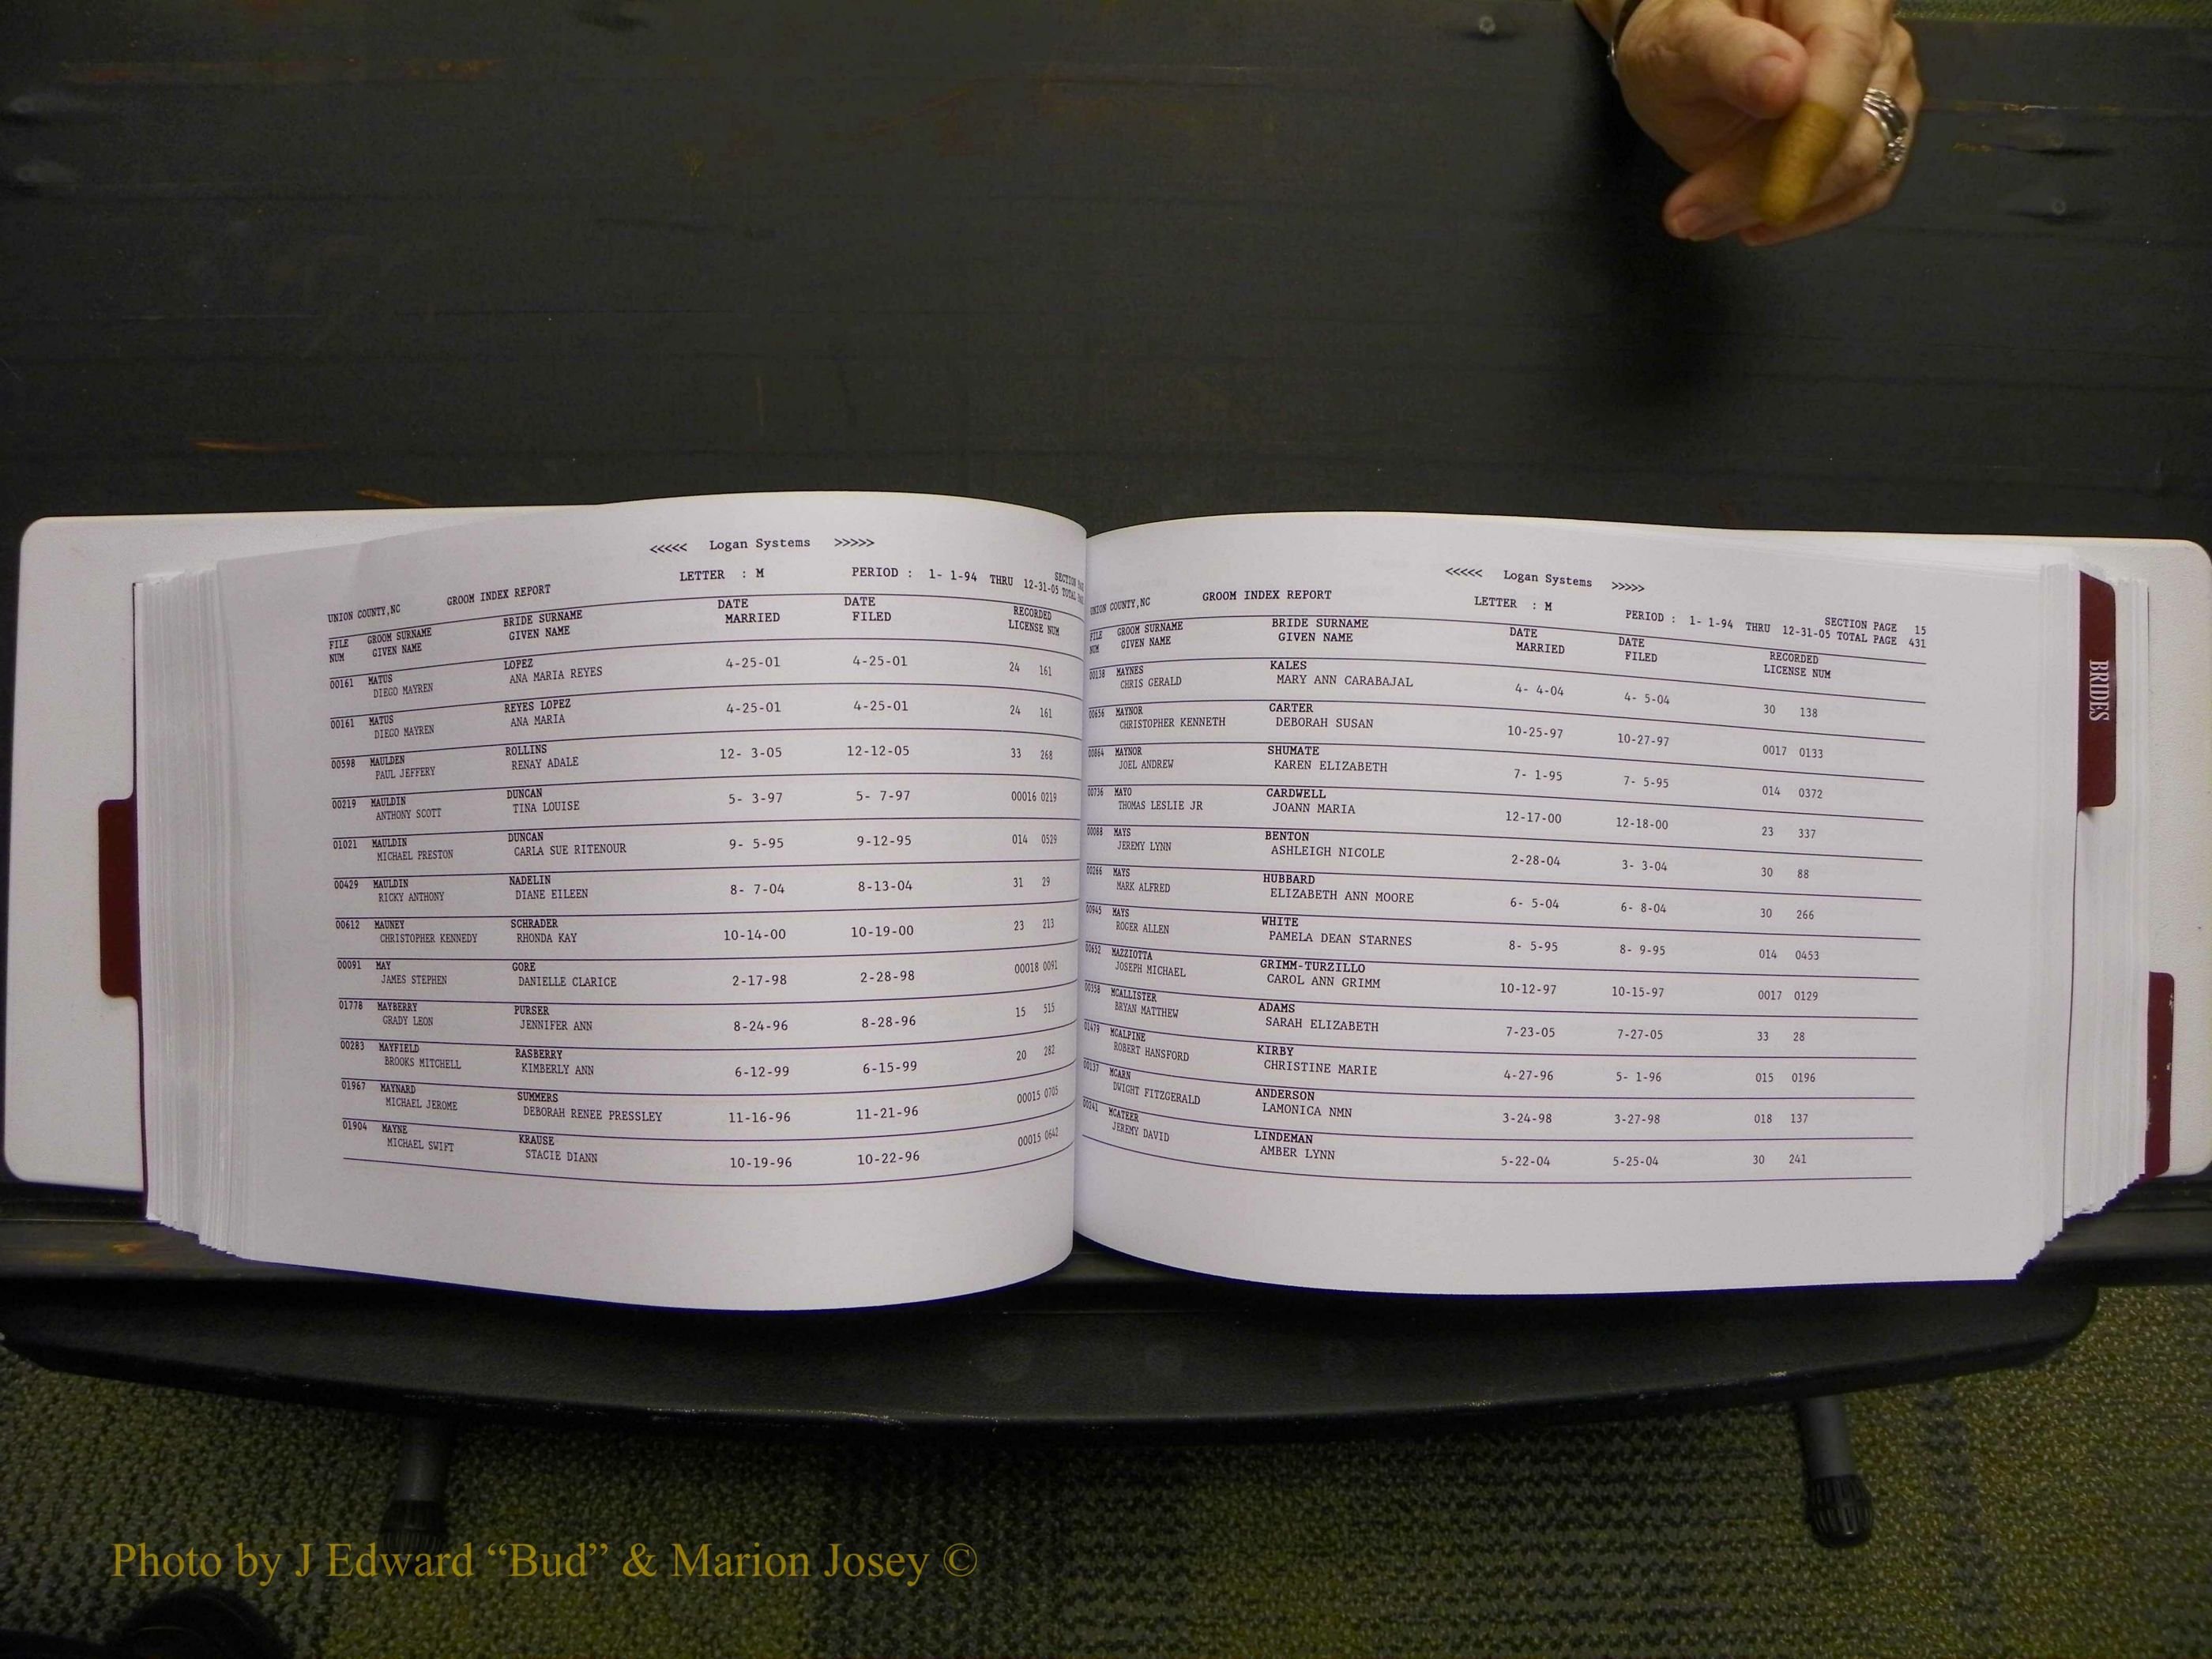 <<<<< Logan Systems >>>>>
UNION COUNTY,NC GROOM INDEX REPORT LETTER : M PERIOD : 1- 1-94 THRU 12-31-05 TOTAL
SECTION
FILE GROOM SURNAME BRIDE SURNAME DATE DATE RECORDED
NUM GIVEN NAME GIVEN NAME MARRIED FILED LICENSE NUM
00161 MATUS LOPEZ 4-25-01 4-25-01 24 161
DIEGO MAYREN ANA MARIA REYES
00161 MATUS REYES LOPEZ 4-25-01 4-25-01 24 161
DIEGO MAYREN ANA MARIA
00598 MAULDEN ROLLINS 12- 3-05 12-12-05 33 268
PAUL JEFFERY RENAY ADALE
00219 MAULDIN DUNCAN 5- 3-97 5- 7-97 00016 0219
ANTHONY SCOTT TINA LOUISE
01021 MAULDIN DUNCAN 9- 5-95 9-12-95 014 0529
MICHAEL PRESTON CARLA SUE RITENOUR
00429 MAULDIN NADELIN 8- 7-04 8-13-04 31 29
RICKY ANTHONY DIANE EILEEN
00612 MAUNEY SCHRADER 10-14-00 10-19-00 23 213
CHRISTOPHER KENNEDY RHONDA KAY
00091 MAY GORE 2-17-98 2-28-98 00018 0091
JAMES STEPHEN DANIELLE CLARICE
01778 MAYBERRY PURSER 8-24-96 8-28-96 15 515
GRADY LEON JENNIFER ANN
00283 MAYFIELD RASBERRY 6-12-99 6-15-99 20 282
BROOKS MITCHELL KIMBERLY ANN
01967 MAYNARD SUMMERS 11-16-96 11-21-96 00015 0705
MICHAEL JEROME DEBORAH RENEE PRESSLEY
01904 MAYNE KRAUSE 10-19-96 10-22-96 00015 0642
MICHAEL SWIFT STACIE DIANN
<<<<< Logan Systems >>>>>
UNION COUNTY,NC GROOM INDEX REPORT LETTER : M SECTION PAGE 15
PERIOD : 1- 1-94 THRU 12-31-05 TOTAL PAGE 431
FILE GROOM SURNAME BRIDE SURNAME DATE DATE RECORDED
NUM GIVEN NAME GIVEN NAME MARRIED FILED LICENSE NUM
00138 MAYNES KALES 4- 4-04 4- 5-04 30 138
CHRIS GERALD MARY ANN CARABAJAL
00656 MAYNOR CARTER 10-25-97 10-27-97 0017 0133
CHRISTOPHER KENNETH DEBORAH SUSAN
00864 MAYNOR SHUMATE 7- 1-95 7- 5-95 014 0372
JOEL ANDREW KAREN ELIZABETH
00736 MAYO CARDWELL 12-17-00 12-18-00 23 337
THOMAS LESLIE JR JOANN MARIA
00088 MAYS BENTON 2-28-04 3- 3-04 30 88
JEREMY LYNN ASHLEIGH NICOLE
00266 MAYS HUBBARD 6- 5-04 6- 8-04 30 266
MARK ALFRED ELIZABETH ANN MOORE
00945 MAYS WHITE 8- 5-95 8- 9-95 014 0453
ROGER ALLEN PAMELA DEAN STARNES
00652 MAZZIOTTA GRIMM-TURZILLO 10-12-97 10-15-97 0017 0129
JOSEPH MICHAEL CAROL ANN GRIMM
00358 MCALLISTER ADAMS 7-23-05 7-27-05 33 28
BRYAN MATTHEW SARAH ELIZABETH
01479 MCALPINE KIRBY 4-27-96 5- 1-96 015 0196
ROBERT HANSFORD CHRISTINE MARIE
00137 MCARN ANDERSON 3-24-98 3-27-98 018 137
DWIGHT FITZGERALD LAMONICA NMN
00241 MCATEER LINDEMAN 5-22-04 5-25-04 30 241
JEREMY DAVID AMBER LYNN
BRIDES
Photo by J Edward “Bud” & Marion Josey ©